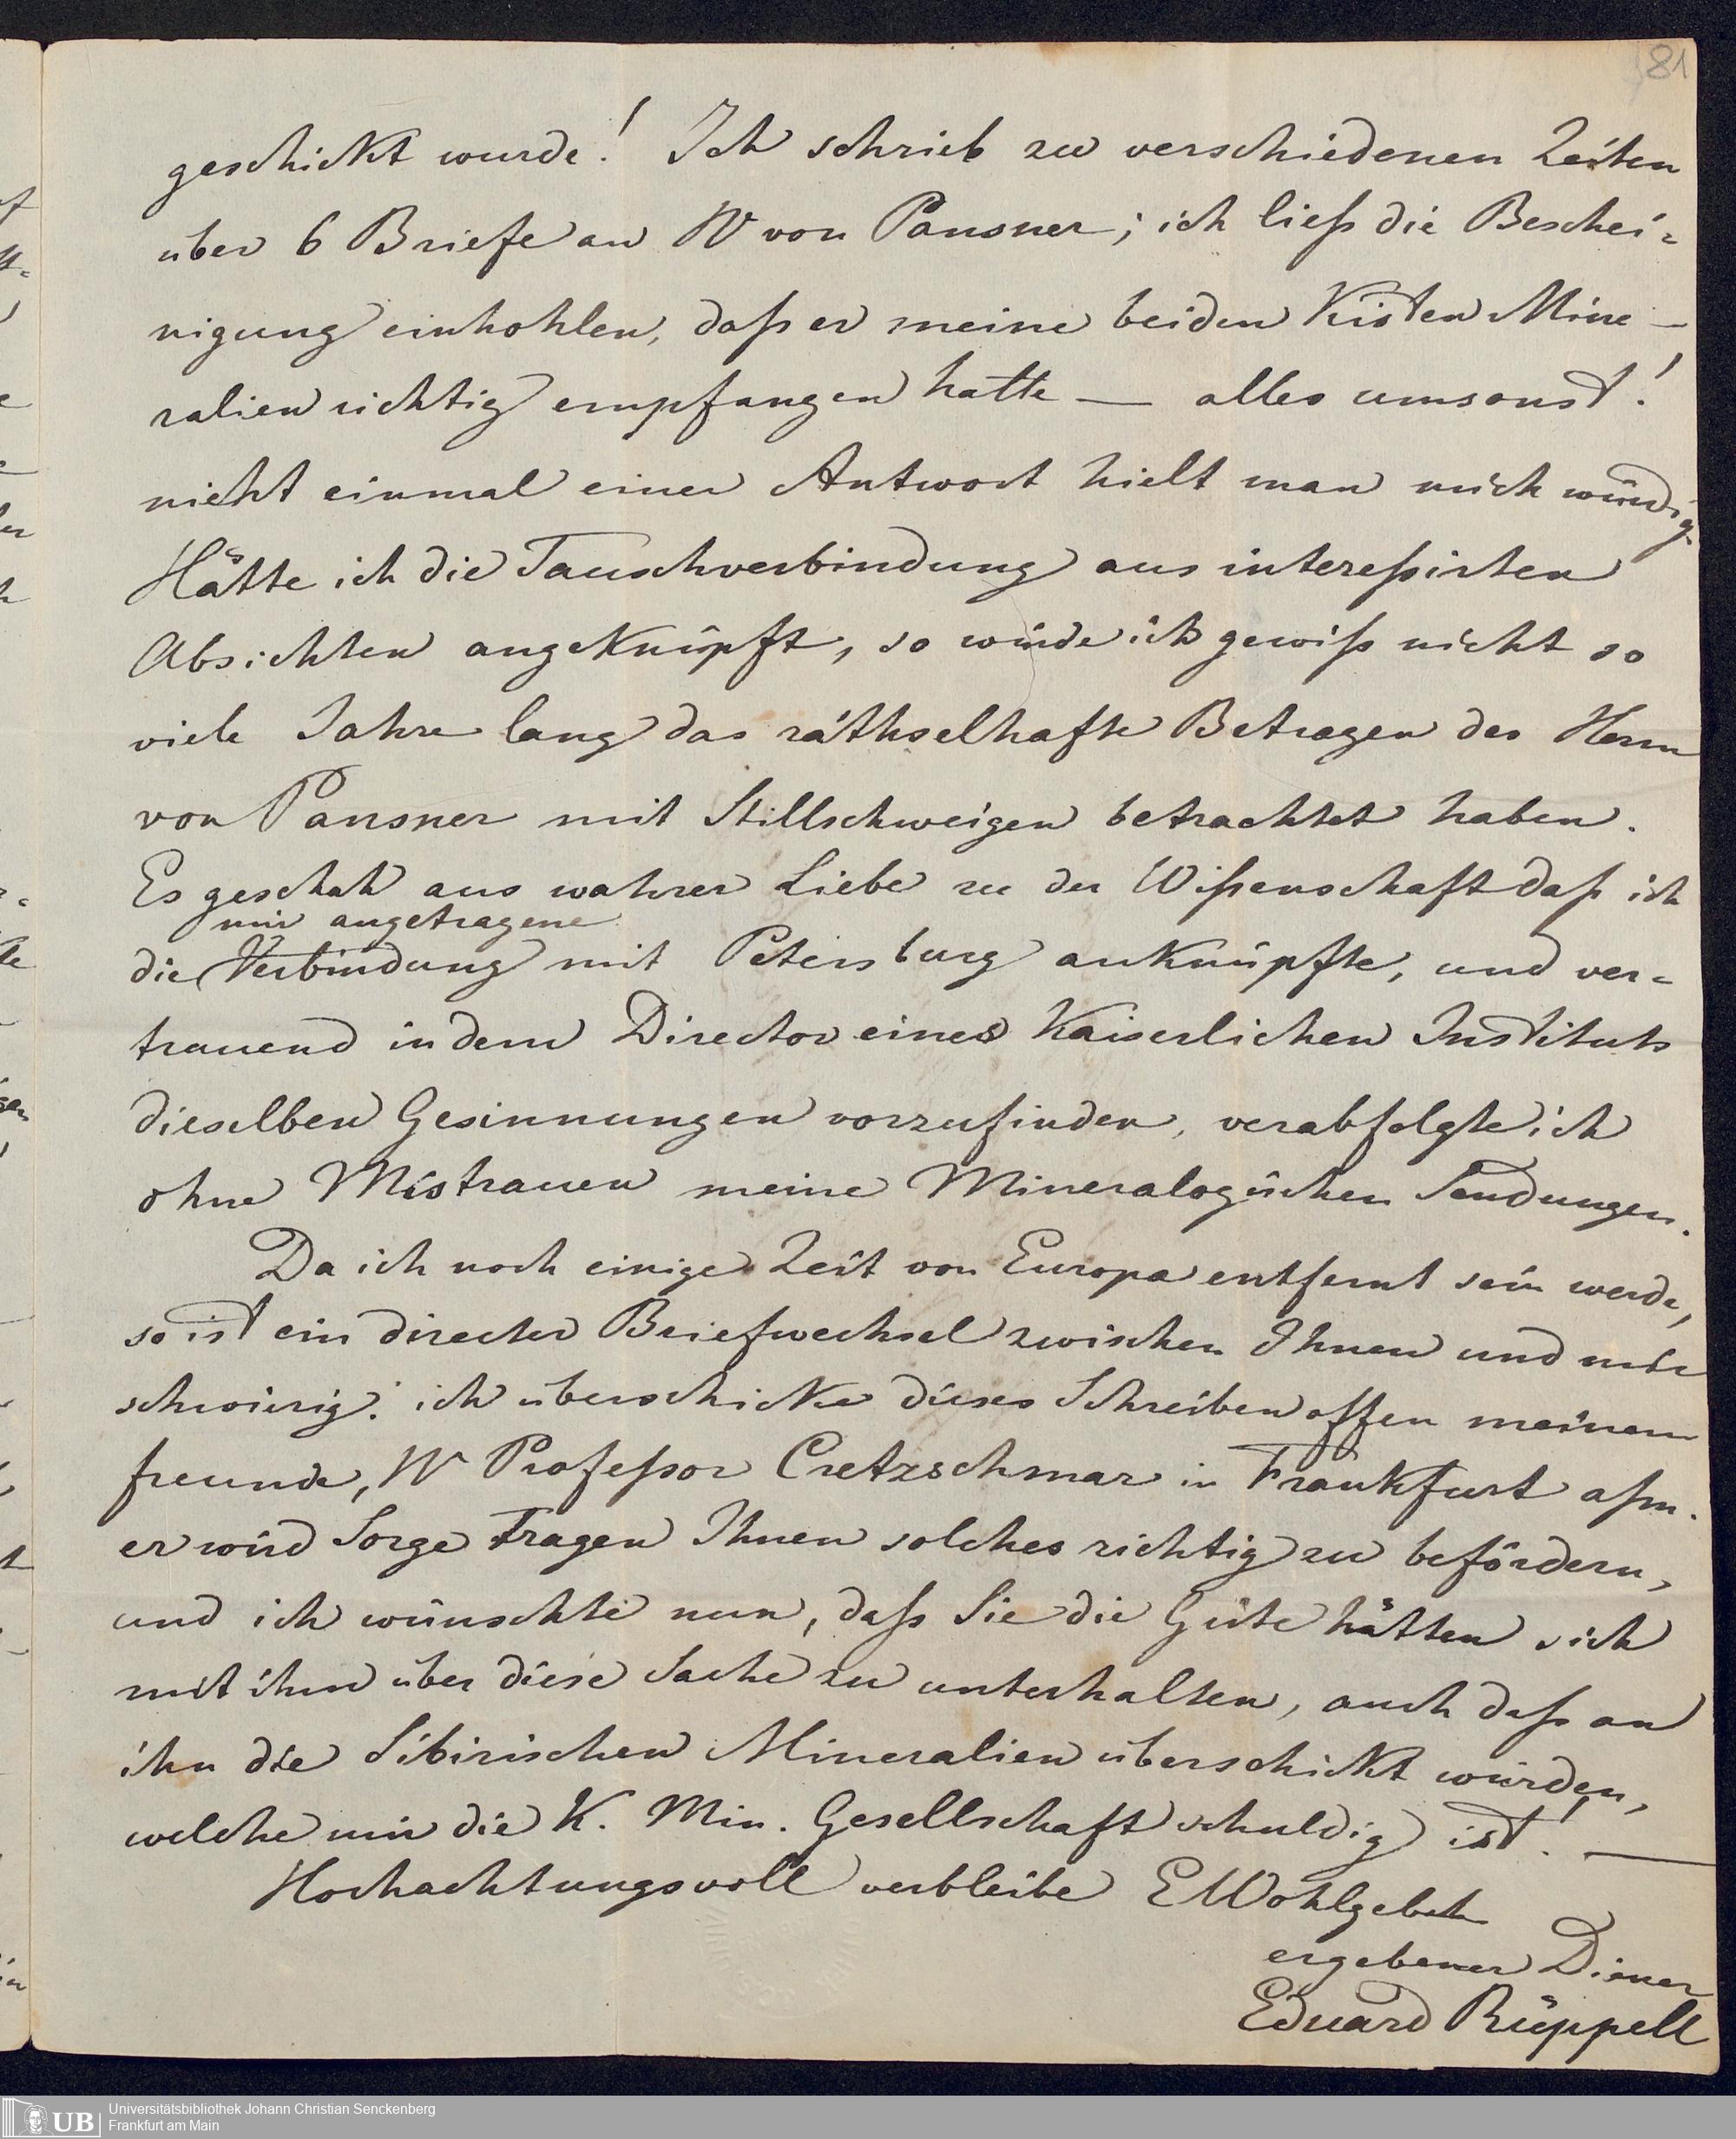 81
geschickt wurde! Ich schrieb zu verschiedenen Zeiten
über 6 Briefe an von Pansner; ich ließ die Beschei=
nigung einhohlen, daß er meine beiden Kisten Mine-
ralien richtig empfangen hatte — alles umsonst!
nicht einmal einer Antwort hielt man mich würdig.
Hätte ich die Tauschverbindung aus intereßirten
Absichten angeknüpft, so würde ich gewiß nicht so
viele Jahre lang das räthselhafte Betragen des Herrn
von Pansner mit Stillschweigen betrachtet haben.
Es geschah aus wahrer Liebe zu der Wißenschaft daß ich
mir angetragene
die Verbindung mit Petersburg anknüpfte, und ver=
trauend in dem Director eines Kaiserlichen Instituts
dieselben Gesinnungen vorzufinden, verabfolgte ich
ohne Mistrauen meine Mineralogischen Sendungen.
Da ich noch einige Zeit von Europa entfernt sein werde,
so ist ein directer Briefwechsel zwischen Ihnen und mir
schwierig: ich überschicke dieses Schreiben offen meinem
freunde, Profeßor Cretzschmar in Frankfurt a/m.
er wird Sorge tragen Ihnen solches richtig zu befördern,
und ich wünschte nun, daß Sie die Güte hätten sich
mit ihm über diese Sache zu unterhalten, auch daß an
ihn die Sibirischen Mineralien überschickt würden,
welche mir die K. Min. Gesellschaft schuldig ist! —
Hochachtungsvoll verbleibe E Wohlgeb
ergebener Diener
Eduard Rüppell
UB
Universitätsbibliothek Johann Christian Senckenberg
Frankfurt am Main